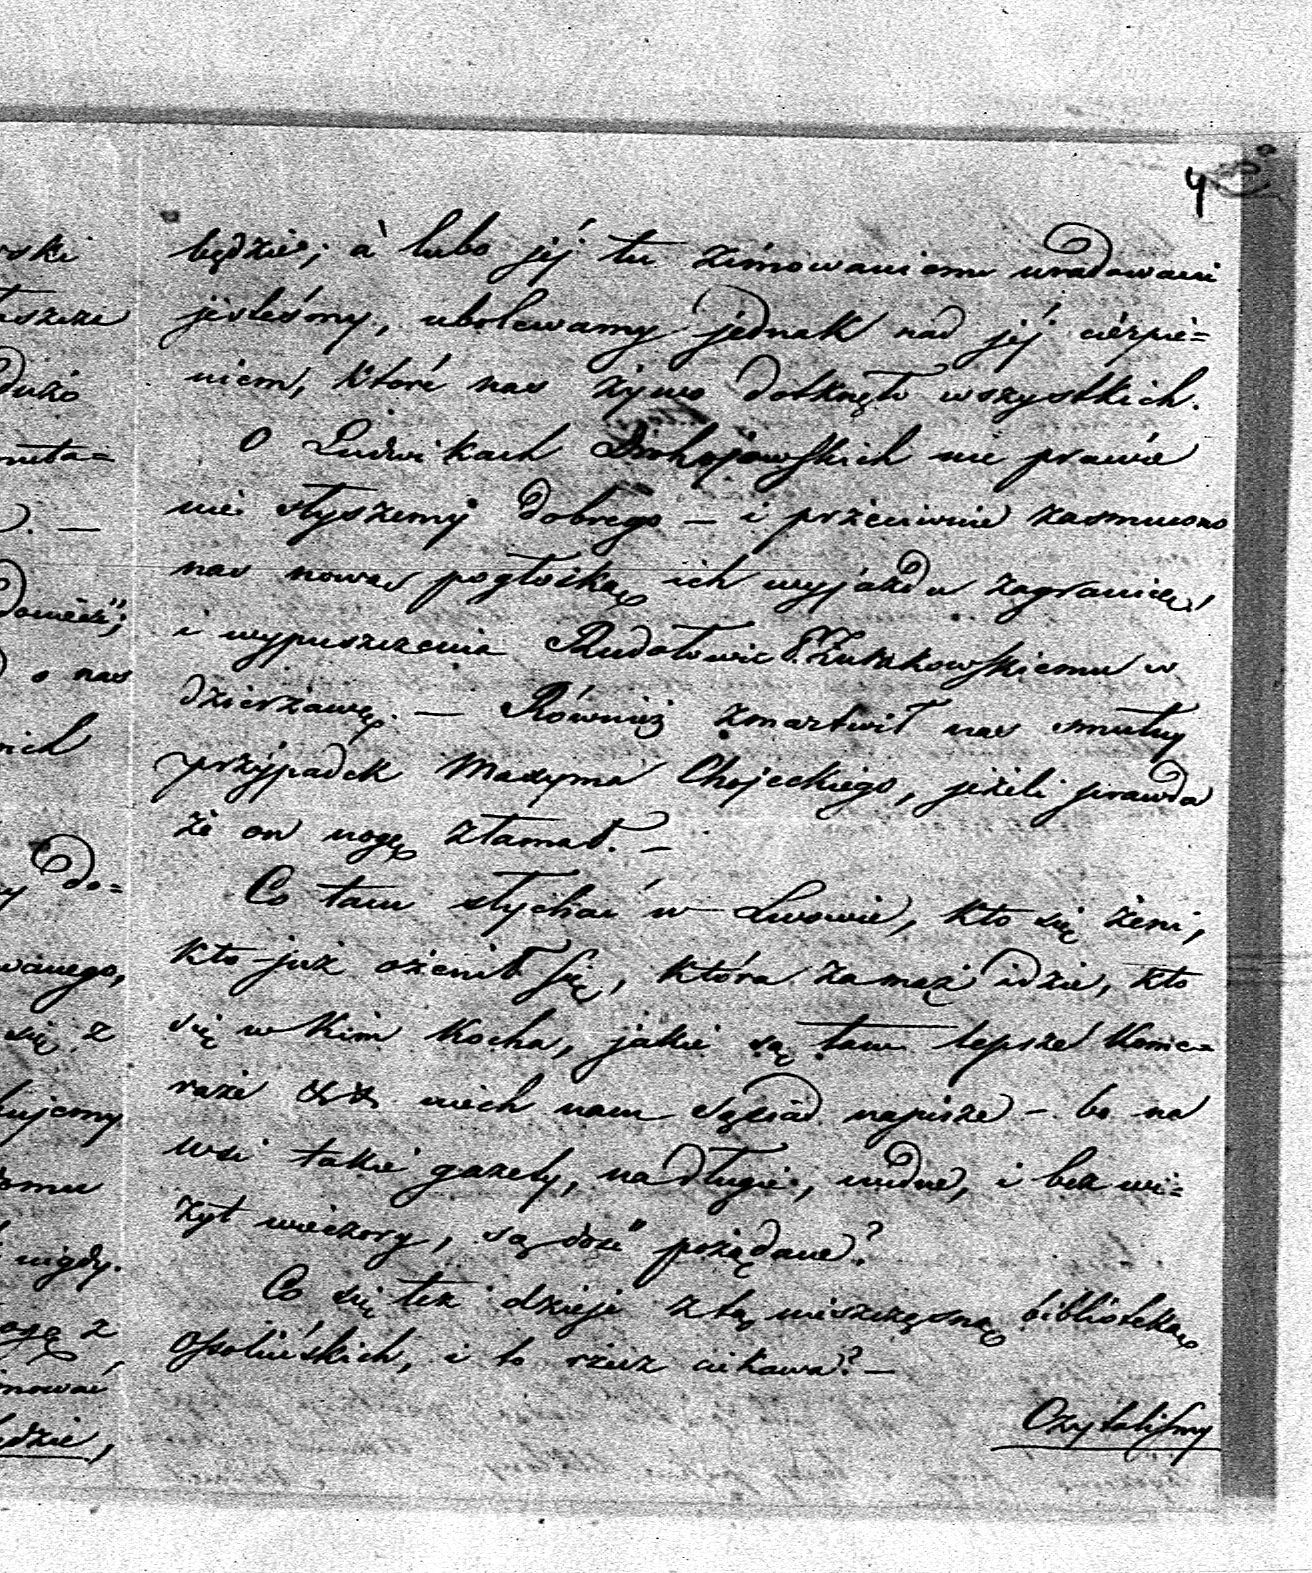 4
będzie; à lubo jéj tu zimowaniem uradowani
jesteśmy, ubolewamy jednak nad jéj ciérpie=
niem, które nas żywo dotknęło wszystkich.
O Ludwikach Drohojowskich nie prawie
nie słyszemy dobrego – i przeciwnie zasmucono
nas nową pogłoską ich wyjazdu zagranicę,
i wypuszczenia Rudołowic P. Żurakowskiemu w
dzierżawę. — Również zmartwił nas smutny
przypadek Maxyma Chojeckiego, jeżeli prawda
że on nogę złamał. —
Co tam słychać w Lwowie, kto się żeni,
kto już ożenił się, która zamąż idzie, kto
się w kim kocha, jakie są tam lepsze kome=
raże &&. niech nam Sąsiad napisze – bo na
wsi takie gazety, na długie, nudne, i bez wi=
zyt wieczory, są dość pożądane?
Co się też dzieje z tą nieszczęsną biblioteką
Ossolińskich, i to rzecz ciekawa? —
Czytaliśmy
rski
dużo
. —
o nas
nich
do=
wanego,
się z
nigdy.
będzie,